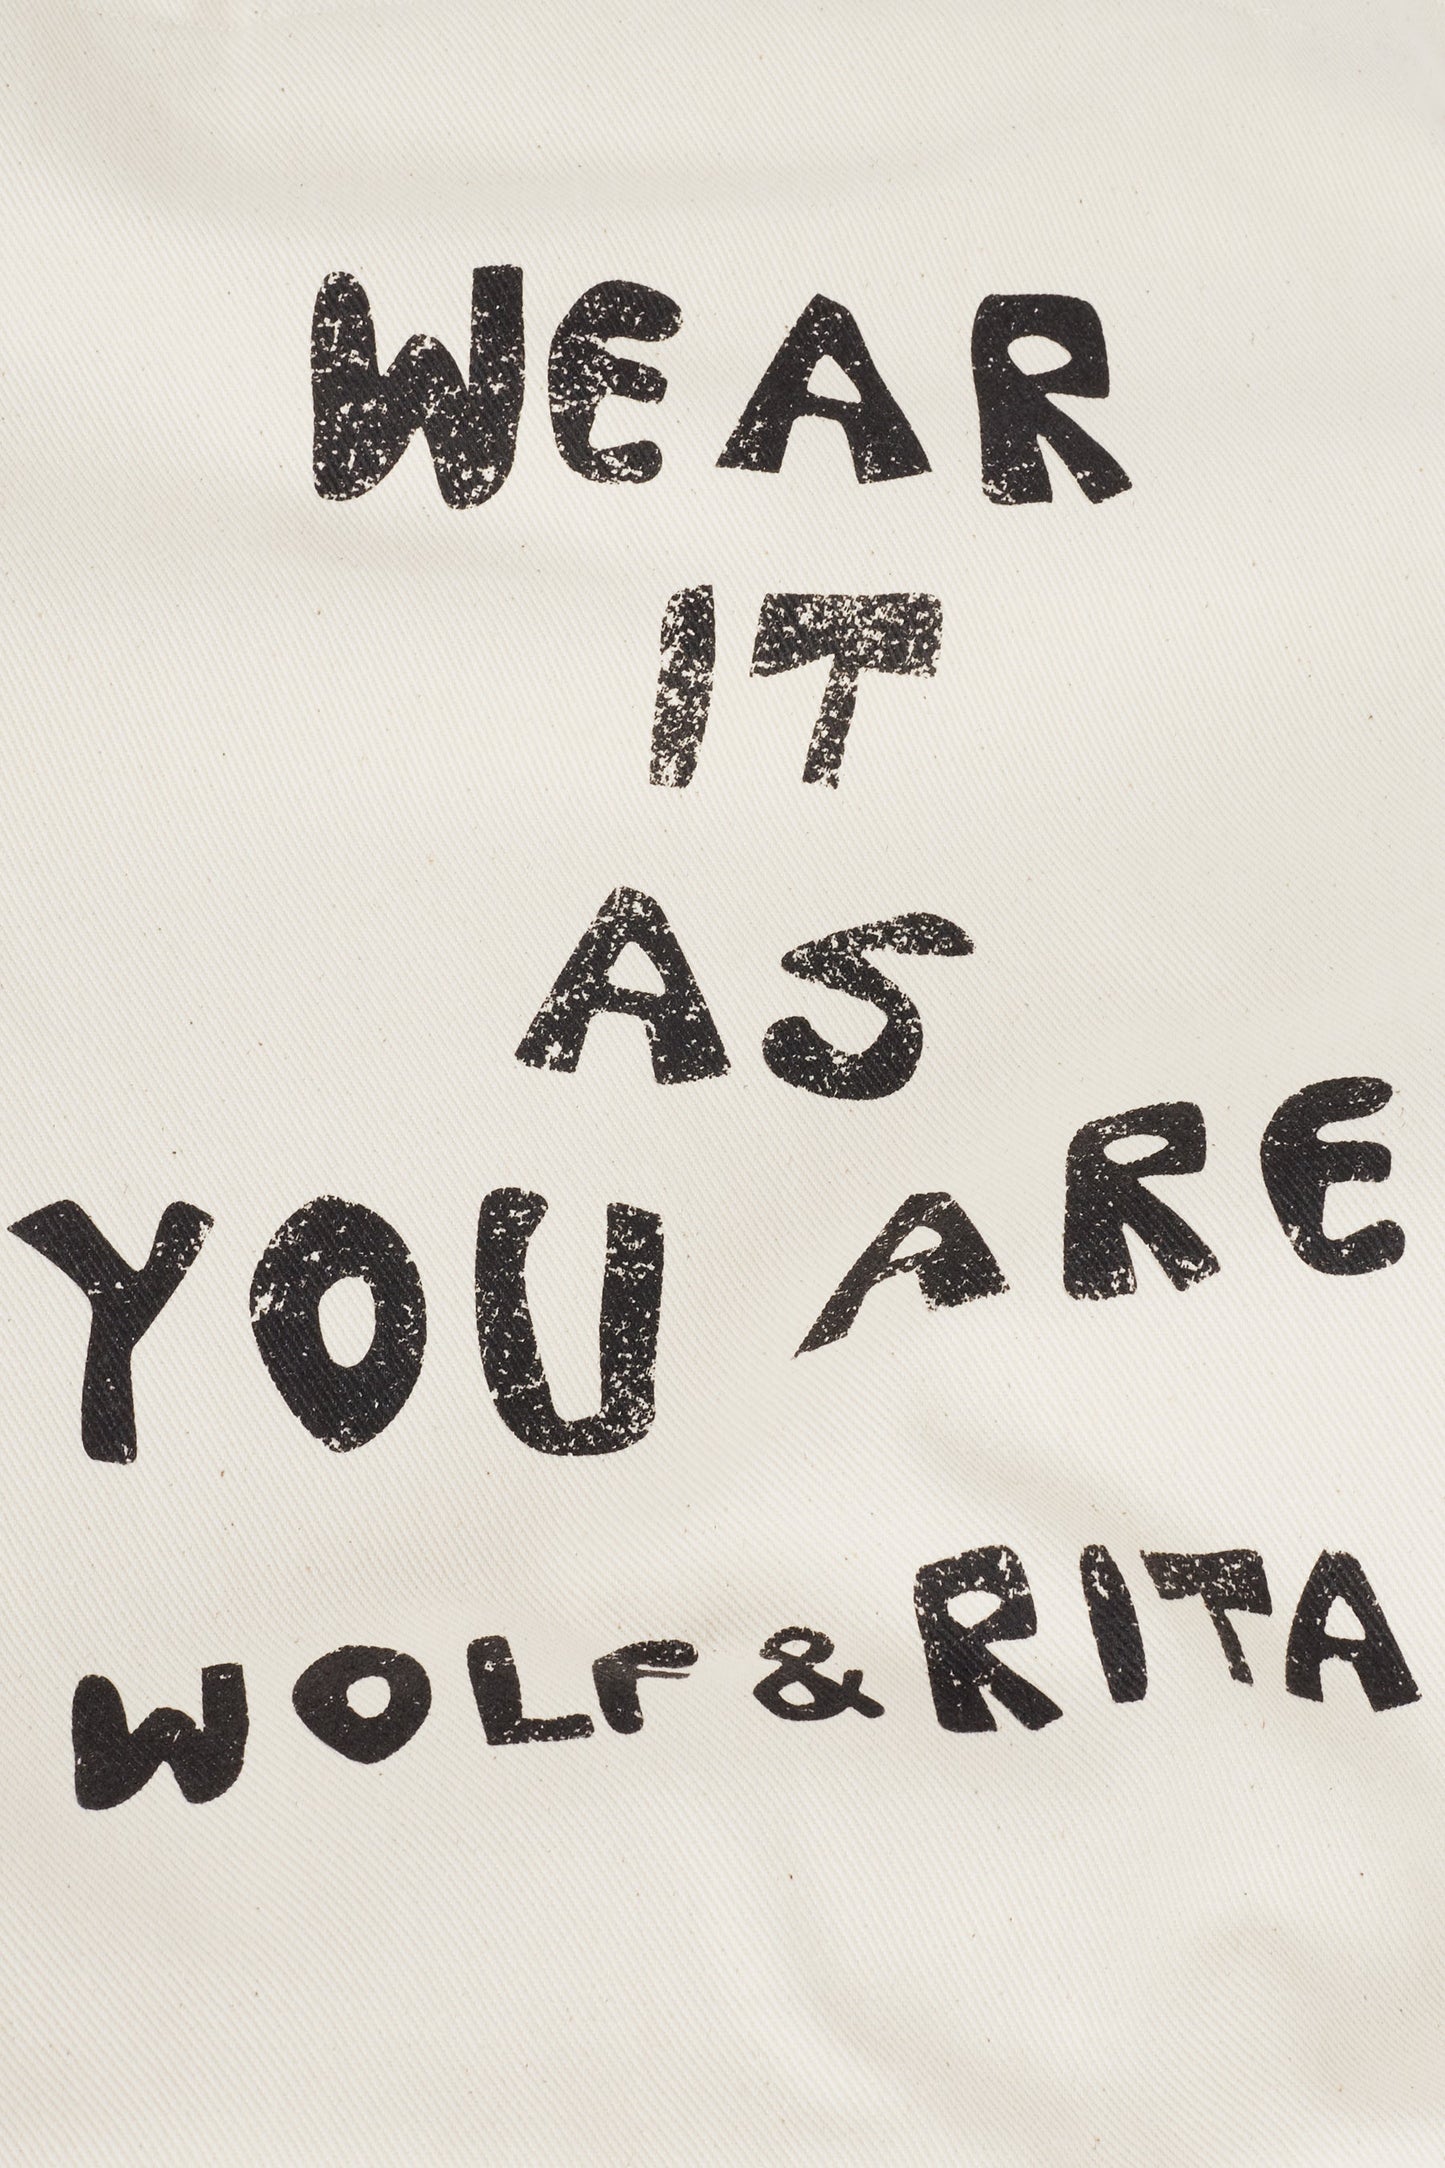 WEAR
IT
AS
YOU ARE
WOLF & RITA